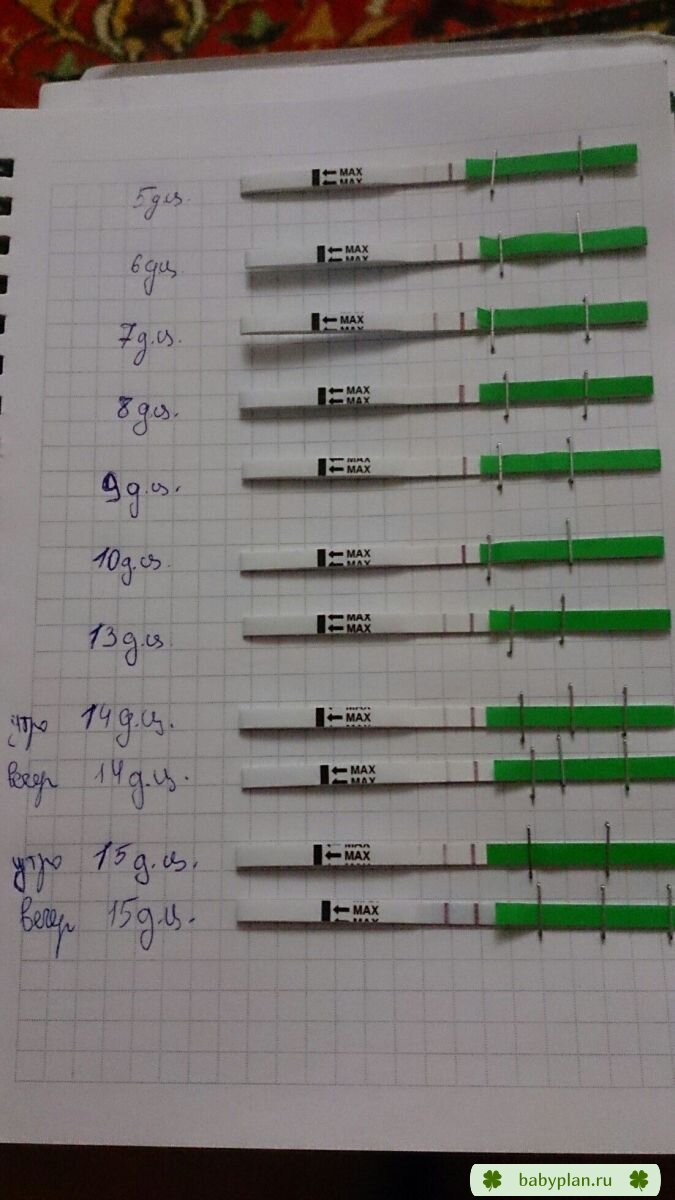 5 д.ц.
MAX
MAX
6 дц
MAX
MAX
7 д.ц.
MAX
MAX
8 д.ц.
MAX
MAX
9 д.ц.
MAX
MAX
10 д.ц.
MAX
MAX
13 д.ц.
MAX
MAX
утро 14 д.ц.
MAX
MAX
вечер 14 д.ц.
MAX
MAX
утро 15 д.ц.
MAX
MAX
вечер 15 д.ц.
MAX
MAX
babyplan.ru